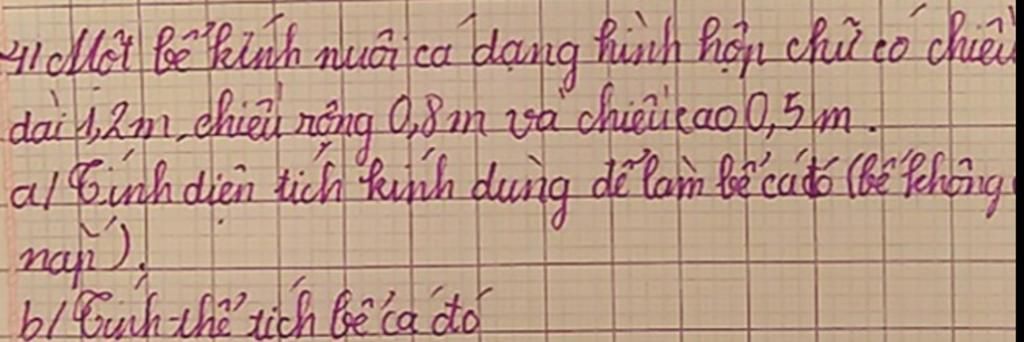 4/ Một bể kính nuôi cá dạng hình hộp chữ có chiều
dài 1,2m, chiều rộng 0,8m và chiều cao 0,5m.
a/ Tính diện tích kính dùng để làm bể cá đó (bể không
nắp).
b/ Tính thể tích bể cá đó